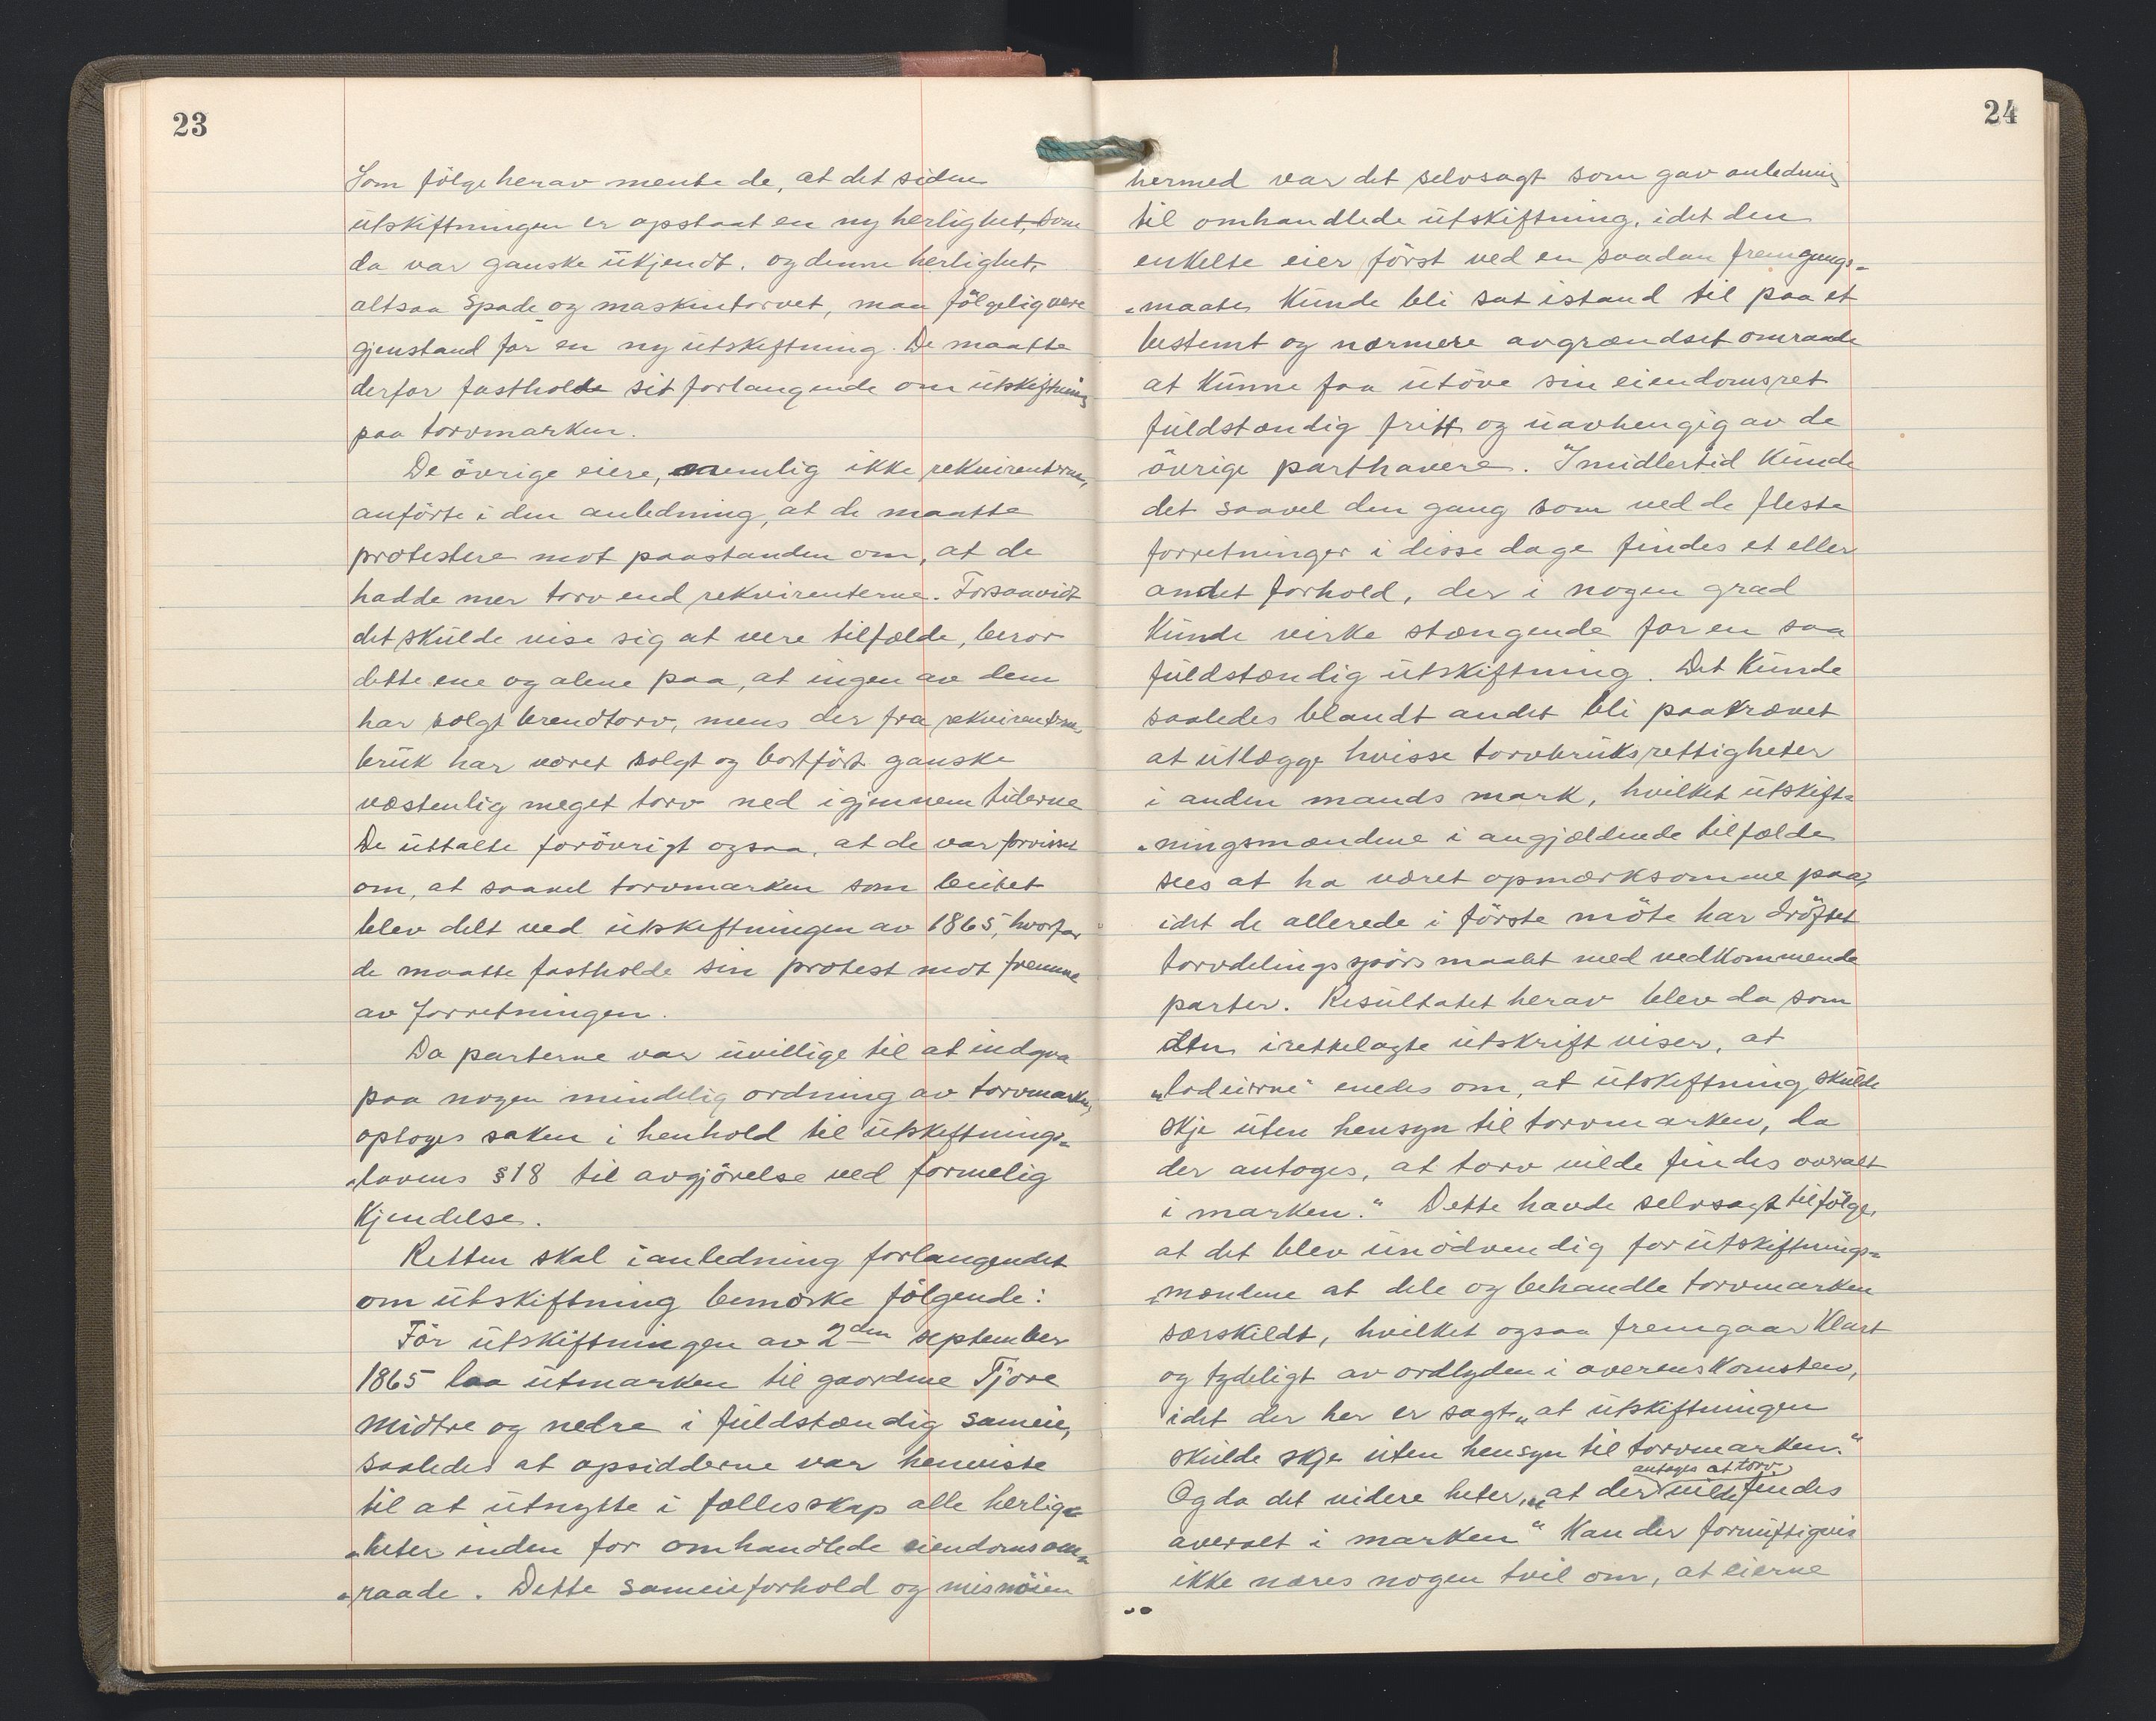 23
Som følge herav mente de, at det siden
utskiftningen er opstaat en ny herlighet, som
da var ganske ukjendt, og denne herlighet,
altsaa spade og maskintorvet, maa følgelig være
gjenstand for en ny utskiftning. De maatte
derfor fastholde sit forlangende om utskiftning
paa torvmarken.
De øvrige eiere, nemlig ikke rekvirenterne,
anførte i den anledning, at de maatte
protestere mot paastanden om, at de
hadde mer torv end rekvirenterne. Forsaavidt
det skulde vise sig at være tilfælde, beror
dette ene og alene paa, at ingen av dem
har solgt brendtorv, mens der fra rekvirenternes
bruk har været solgt og bortført ganske
væstenlig meget torv ned igjennem tiderne
De uttalte forøvrigt ogsaa, at de var forvisset
om, at saavel torvmarken som beitet
blev delt ved utskiftningen av 1865, hvorfor
de maatte fastholde sin protest mot fremme
av forretningen.
Da parterne var uvillige til at indgaa
paa nogen mindelig ordning av torvmarken,
optoges saken i henhold til utskiftnings=
„lovens § 18 til avgjørelse ved formelig
Kjendelse.
Retten skal i anledning forlangendet
om utskiftning bemerke følgende:
Før utskiftningen av 2den september
1865 laa utmarken til gaardene Tjore
midtre og nedre i fuldstændig sameie,
saaledes at opsidderne var henviste
til at utnytte i fællesskap alle herlig=
„heter inden for omhandlede eiendomsom=
„raade. Dette sameieforhold og misnøien
24
hermed var det selvsagt som gav anledning
til omhandlede utskiftning, idet den
enkelte eier først ved en saadan fremgangs=
„maate kunde bli sat istand til paa et
bestemt og nærmere avgrændset omraade
at kunne faa utøve sin eiendomsret
fuldstændig fritt og uavhengig av de
øvrige parthavere. Imidlertid kunde
det saavel den gang som ved de fleste
forretninger i disse dage findes et eller
andet forhold, der i nogen grad
kunde virke stængende for en saa
fuldstændig utskiftning. Det kunde
saaledes blandt andet bli paakrævet
at utlægge hvisse torvbruksrettigheter
i anden mands mark, hvilket utskift=
„ningsmændene i angjældende tilfælde
sees at ha været opmærksomme paa,
idet de allerede i første møte har drøftet
torvdelingsspørsmaalet med vedkommende
parter. Resultatet herav blev da som
den irettelagte utskrift viser, at
„lodeierne" enedes om, at utskiftning skulde
skje uten hensyn til torvmarken, da
der antoges, at torv vilde findes overalt
i marken." Dette havde selvsagt tilfølge,
at det blev unødvendig for utskiftnings=
„mændene at dele og behandle torvmarken
særskildt, hvilket ogsaa fremgaar klart
og tydeligt av ordlyden i overenskomsten,
idet der her er sagt „at utskiftningen
skulde skje uten hensyn til torvmarken."
antoges at torv
Og da det videre heter, „at der vilde findes
averalt i marken" kan der fornuftigvis
ikke næres nogen tvil om, at eierne